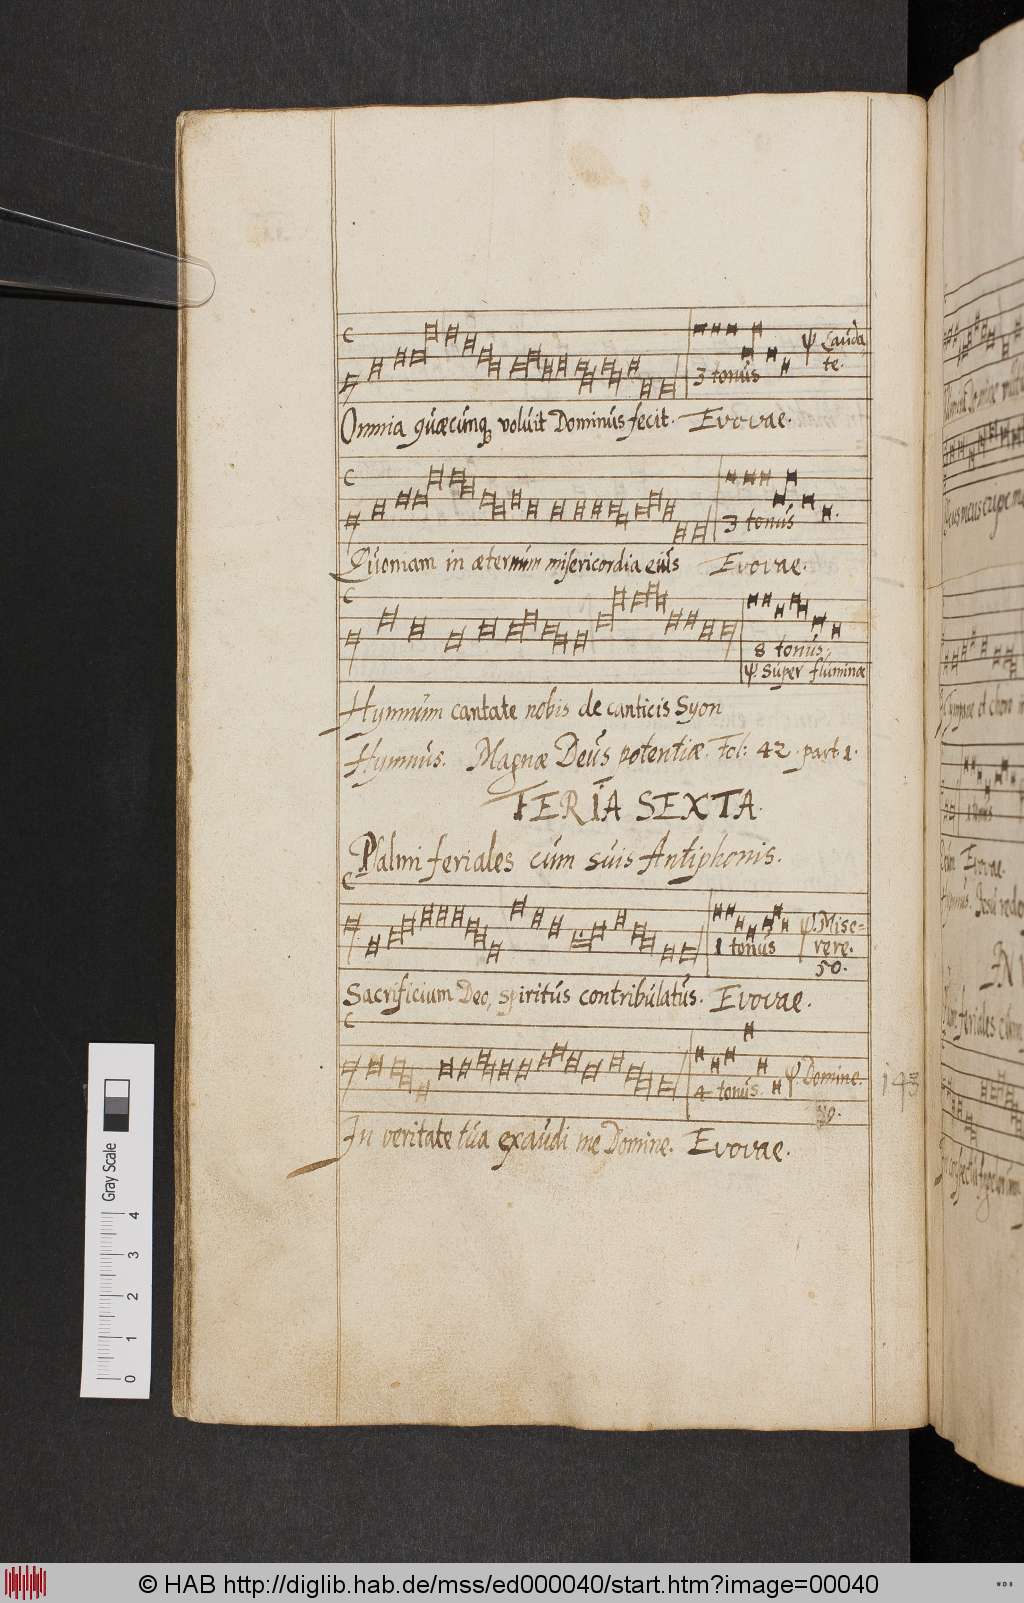 ψ Lauda
3 tonus te.
Omnia quæcunq voluit Dominus fecit. Evovae.
3 tonus
Quoniam in æternum misericordia eius Evovae.
8 tonus.
ψ. Super flumina
Hymnum cantate nobis de canticis Syon
Hymnus. Magnæ Deus potentiæ. Fol: 42. part. 1.
FERIA SEXTA.
Psalmi feriales cum suis Antiphonis.
1 tonus ψ. Mise=
rere.
50.
Sacrificium Deo, spiritus contribulatus. Evovae.
4 tonus. ψ. Domine. 143
In veritate tua exaudi me Domine. Evovae.
Gray Scale
0 1 2 3 4
© HAB http://diglib.hab.de/mss/ed000040/start.htm?image=00040